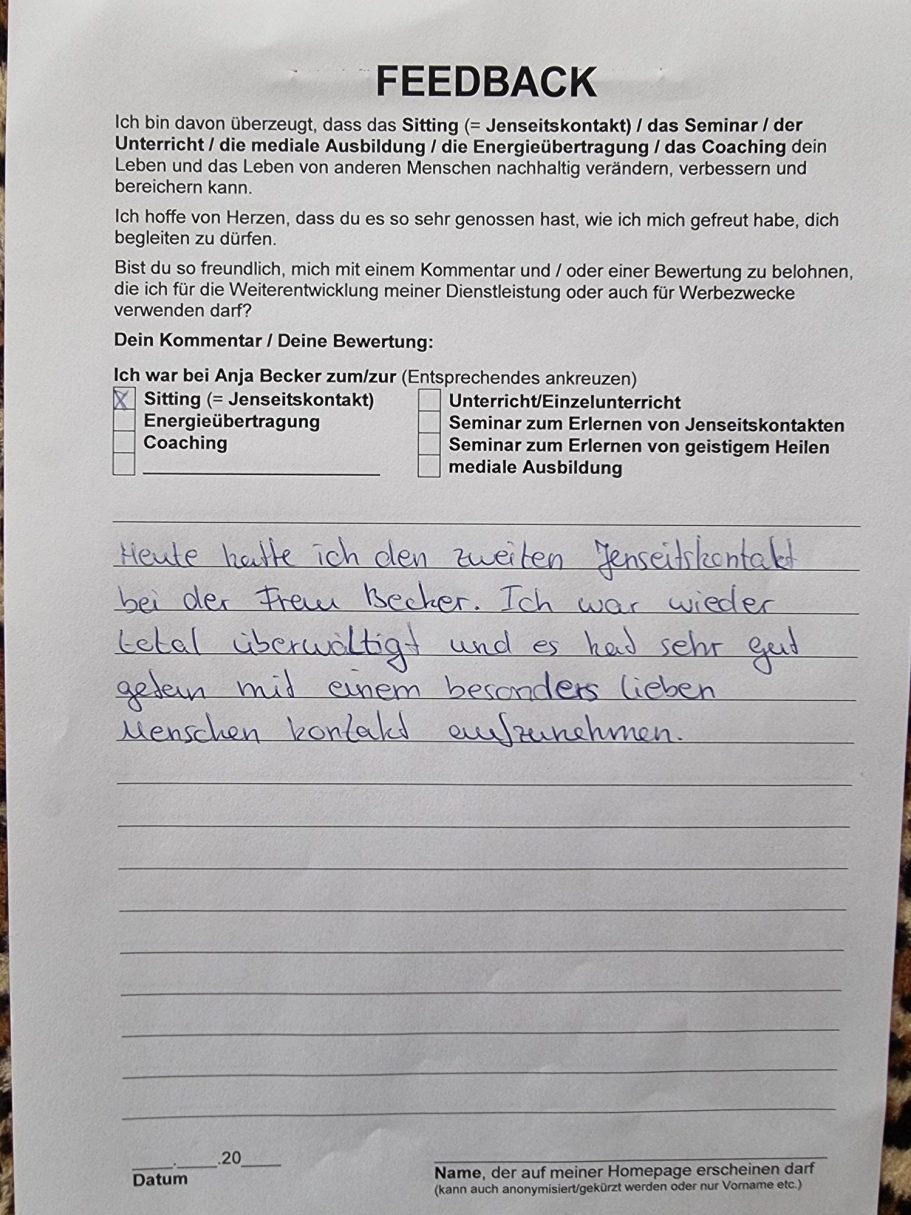 FEEDBACK
Ich bin davon überzeugt, dass das Sitting (= Jenseitskontakt) / das Seminar / der
Unterricht / die mediale Ausbildung / die Energieübertragung / das Coaching dein
Leben und das Leben von anderen Menschen nachhaltig verändern, verbessern und
bereichern kann.
Ich hoffe von Herzen, dass du es so sehr genossen hast, wie ich mich gefreut habe, dich
begleiten zu dürfen.
Bist du so freundlich, mich mit einem Kommentar und / oder einer Bewertung zu belohnen,
die ich für die Weiterentwicklung meiner Dienstleistung oder auch für Werbezwecke
verwenden darf?
Dein Kommentar / Deine Bewertung:
Ich war bei Anja Becker zum/zur (Entsprechendes ankreuzen)
X Sitting (= Jenseitskontakt)
Energieübertragung
Coaching
Unterricht/Einzelunterricht
Seminar zum Erlernen von Jenseitskontakten
Seminar zum Erlernen von geistigem Heilen
mediale Ausbildung
Heute hatte ich den zweiten Jenseitskontakt
bei der Frau Becker. Ich war wieder
total überwältigt und es hat sehr gut
getan mit einem besonders lieben
Menschen kontakt aufzunehmen.
____.____.20____
Datum
Name, der auf meiner Homepage erscheinen darf
(kann auch anonymisiert/gekürzt werden oder nur Vorname etc.)